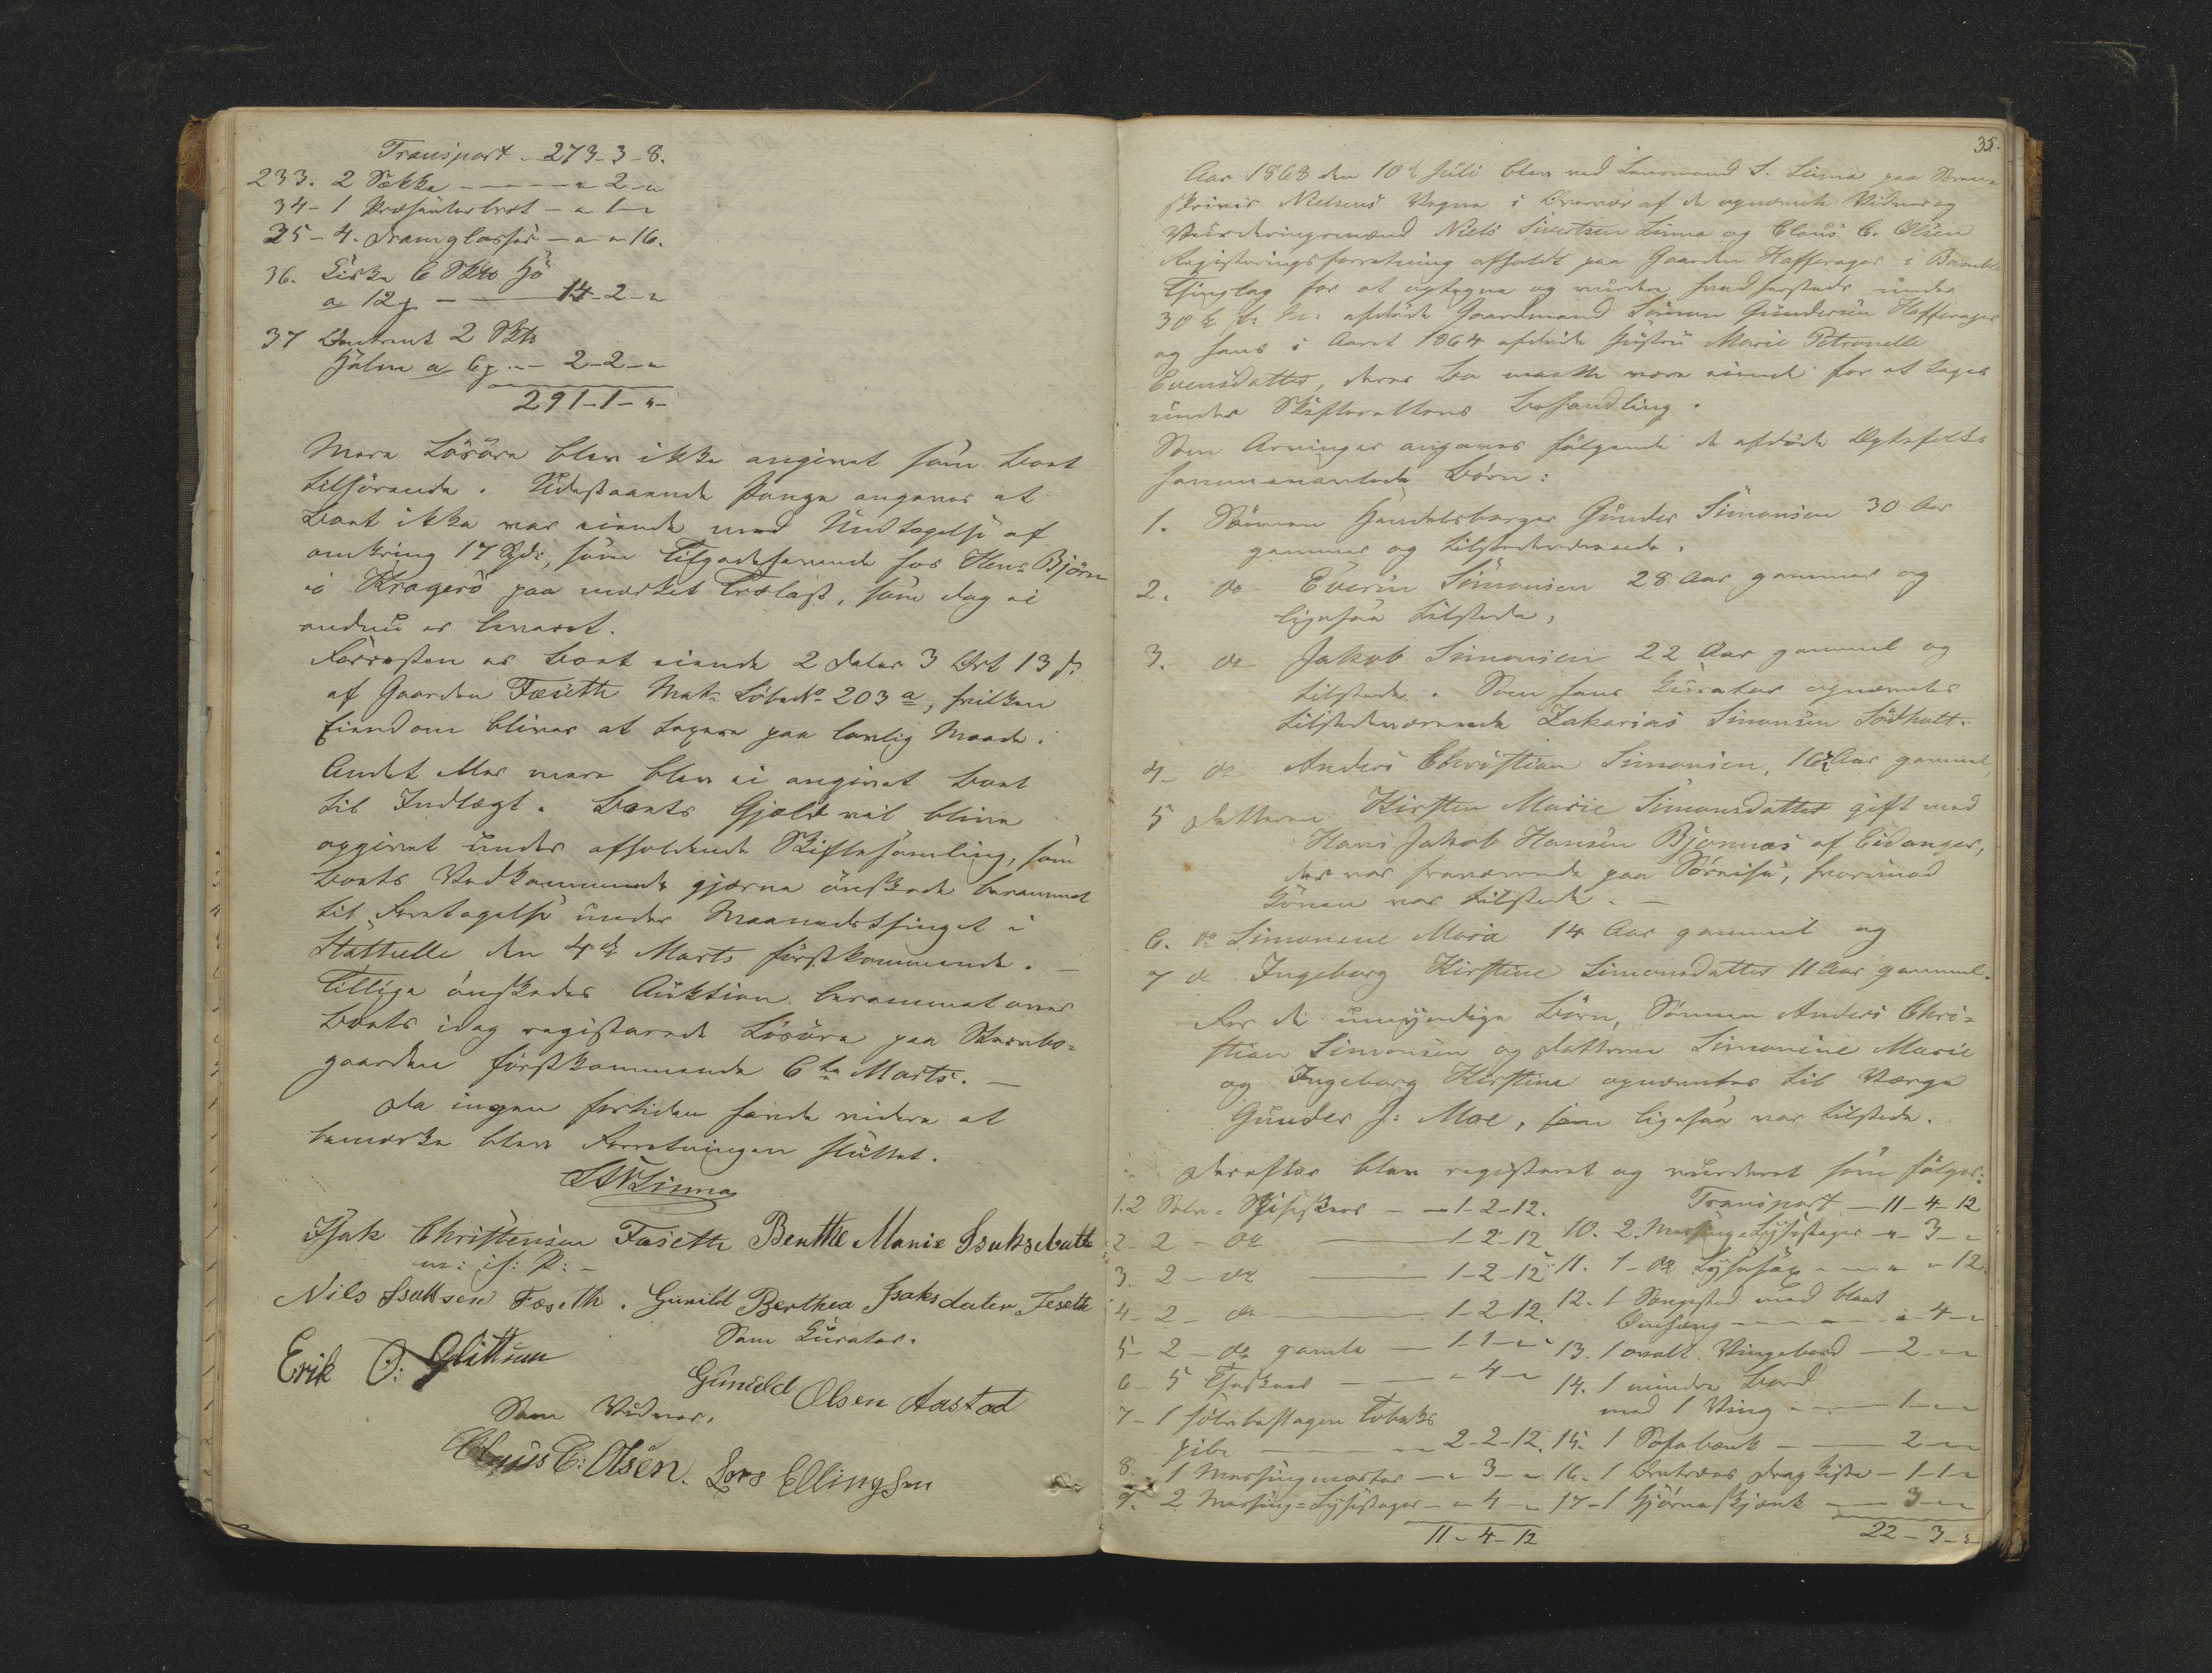 Transport - 273-3-8.
233. 2 Sække - - - - " 2 - "
34 - 1 Præsenterbret - " 1 - "
35 - 4. Dramglasser - " - " 16.
36. Circa 6 Sk℔ Hø
a 12 - 14-2-"
37 Omtrent 2 Sk℔
Halm a 6 - 2-2-"
291-1-"-
Mere Løsøre blev ikke angivet som Boet
tilhørende. Udestaaende Penge angaves at
Boet ikke var eiende med Undtagelse af
omkring 17 Spd:, som Tilgodehavende hos Hans Bjørn
i Kragerø paa mærket Trælast, som dog ei
endnu er leveret.
Forresten er Boet eiende 2 Daler 3 Ort 13 s.
af Gaarden Fæseth Matr Løbe No 203 a, hvilken
Eiendom bliver at taxere paa lovlig Maade.
Andet eller mere blev ei angivet Boet
til Indtægt. Boets Gjæld vil blive
opgivet under afholdende Skiftesamling, som
Boets Vedkommende gjerne ønskede berammet
til Foretagelse under Maanedsthinget i
Stathelle den 4de Marts førstkommende. -
Tillige ønskedes Auktion berammet over
Boets idag registerede Løsøre paa Stervbo-
gaarden førstkommende 6te Marts. -
Da ingen fortiden havde videre at
bemærke blev Forretningen sluttet.
Linna
Isak Christensen Fæseth Benthe Marie Isaksdatte
m: if: P: -
Nils Isaksen Fæseth. Gunild Berthea Isaksdater Feseth
Som Kurator.
Erik O: Glittum
Gunuld Olsen Aastad
Som Vidner.
Claus C: Olsen. Lars Ellingsen
35.
Aar 1868 den 10de Juli blev ved Lensmand S. Linna paa Soren-
skriver Nielsens Vegne i Overvær af de opnævnte Vidner og
Vurderingsmænd Niels Sivertsen Linna og Claus C. Olsen
Registeringsforretning afholdt paa Gaarden Hafsrager i Bamble
Thinglag for at optegne og vurdere hvad forefandtes under
30te f: M: afdøde Gaardmand Simon Gundersen Hafsrager
og hans i Aaret 1864 afdøde Hustru Marie Petronelle
Evensdatter, deres Bo maatte være eiende for at tages
under Skifterettens Behandling.
Som Arvinger angaves følgende de afdøde Egtefolks
sammenavlede Børn:
1. Sønnen Handelsborger Gunder Simonsen 30 Aar
gammel og tilstedeværende.
2. do Everin Simonsen 28 Aar gammel og
ligesaa tilstede,
3. do Jakob Simonsen 22 Aar gammel og
tilstede. Som hans Kurator opnævntes
tilstedeværende Zakarias Simonsen Lødhult.
4 - do Anders Christian Simonsen, 16½ Aar gammel,
5 Datteren Kirsten Marie Simonsdatter gift med
Hans Jakob Hansen Bjønnes af Eidanger,
der var fraværende paa Søreise, hvorimod
Konen var tilstede. -
6. do Simonene Marie 14 Aar gammel og
7 do Ingeborg Kirstine Simonsdatter 11 Aar gammel.
For de umyndige Børn, Sønnen Anders Chri-
stian Simonsen og Døttrene Simonine Marie
og Ingeborg Kirstine opnævntes til Værge
Gunder J: Moe, som ligesaa var tilstede.
Derefter blev registeret og vurderet som følger:
1. 2 Sølv-Spiseskeer - - 1-2-12.
2 - 2 - do - 1-2-12
3. 2 - do - 1-2-12
4 - 2 - do - 1-2-12.
5 - 2 - do gamle - 1-1-"
6 - 5 Theskeer - - " 4 - "
7 - 1 sølvbeslagen Tobaks
pibe - 2-2-12.
8. 1 Messingmorter - " 3 - "
9. 2 Messing-Lysestager - " 4 - "
11-4-12
Transport - 11-4-12
10. 2. Messing-Lysestager - " 3 - "
11. 1 - do Lysesax - - " - " 12.
12. 1 Sengested med blaat
Omhæng - - - " 4 - "
13. 1 ovalt Vingebord - 2 - " "
14. 1 mindre Bord
med 1 Ving - - 1 - " "
15. 1 Sofabænk - - 2 - " "
16. 1 Dragkiste - 1-1-"
17 - 1 Hjørneskjænk - 3 - " "
22-3-"